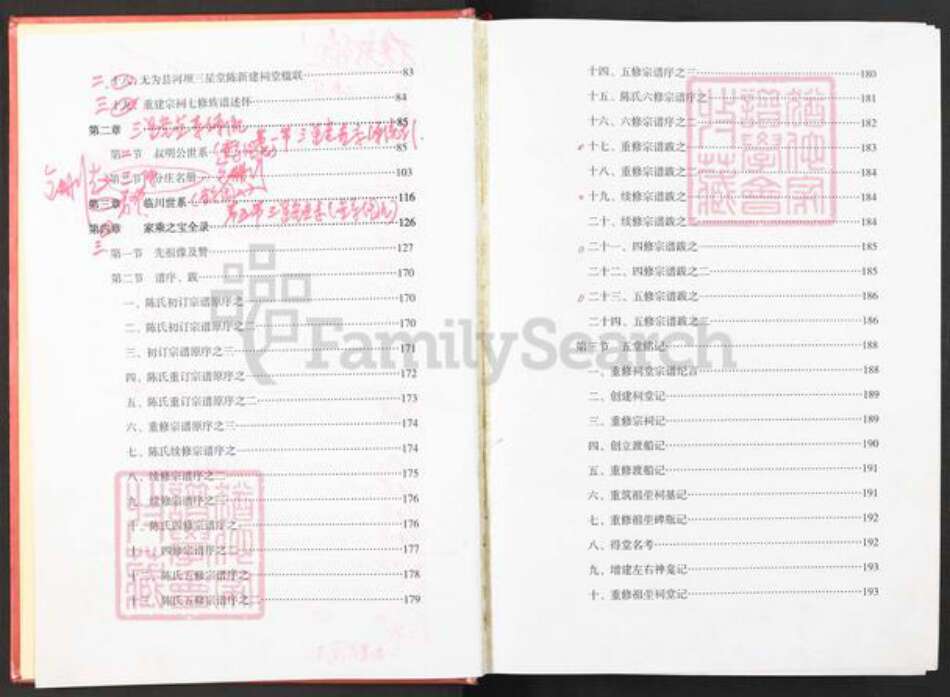 十六、无为县河坝三星堂陈新建祠堂楹联 83
十七、重建宗祠七修族谱述怀 84
第二章 85
第一节 叔明公世系 85
第二节 分庄名册 103
第三章 临川世系 116
第四章 家乘之宝全录 126
第一节 先祖像及赞 127
第二节 谱序、跋 170
一、陈氏初订宗谱原序之一 170
二、陈氏初订宗谱原序之二 170
三、初订宗谱原序之三 171
四、陈氏重订宗谱原序之一 172
五、陈氏重订宗谱原序之二 173
六、重修宗谱原序之三 174
七、陈氏续修宗谱序之一 174
八、续修宗谱序之二 175
九、续修宗谱序之三 176
十、陈氏四修宗谱序之一 176
十一、四修宗谱序之二 177
十二、陈氏五修宗谱序之一 178
十三、陈氏五修宗谱序之二 179
十四、五修宗谱序之三 180
十五、陈氏六修宗谱序之一 181
十六、六修宗谱序之二 182
十七、重修宗谱跋之一 183
十八、重修宗谱跋之二 184
十九、续修宗谱跋之一 184
二十、续修宗谱跋之二 184
二十一、四修宗谱跋之一 185
二十二、四修宗谱跋之二 185
二十三、五修宗谱跋之一 186
二十四、五修宗谱跋之二 186
第三节 五堂铭记 188
一、重修祠堂宗谱纪言 188
二、创建祠堂记 189
三、重修宗祠记 189
四、创立渡船记 190
五、重修渡船记 191
六、重筑祖茔祠基记 191
七、重修祖茔碑瓶记 192
八、得堂名考 192
九、增建左右神龛记 193
十、重修祖茔祠堂记 193
FamilySearch